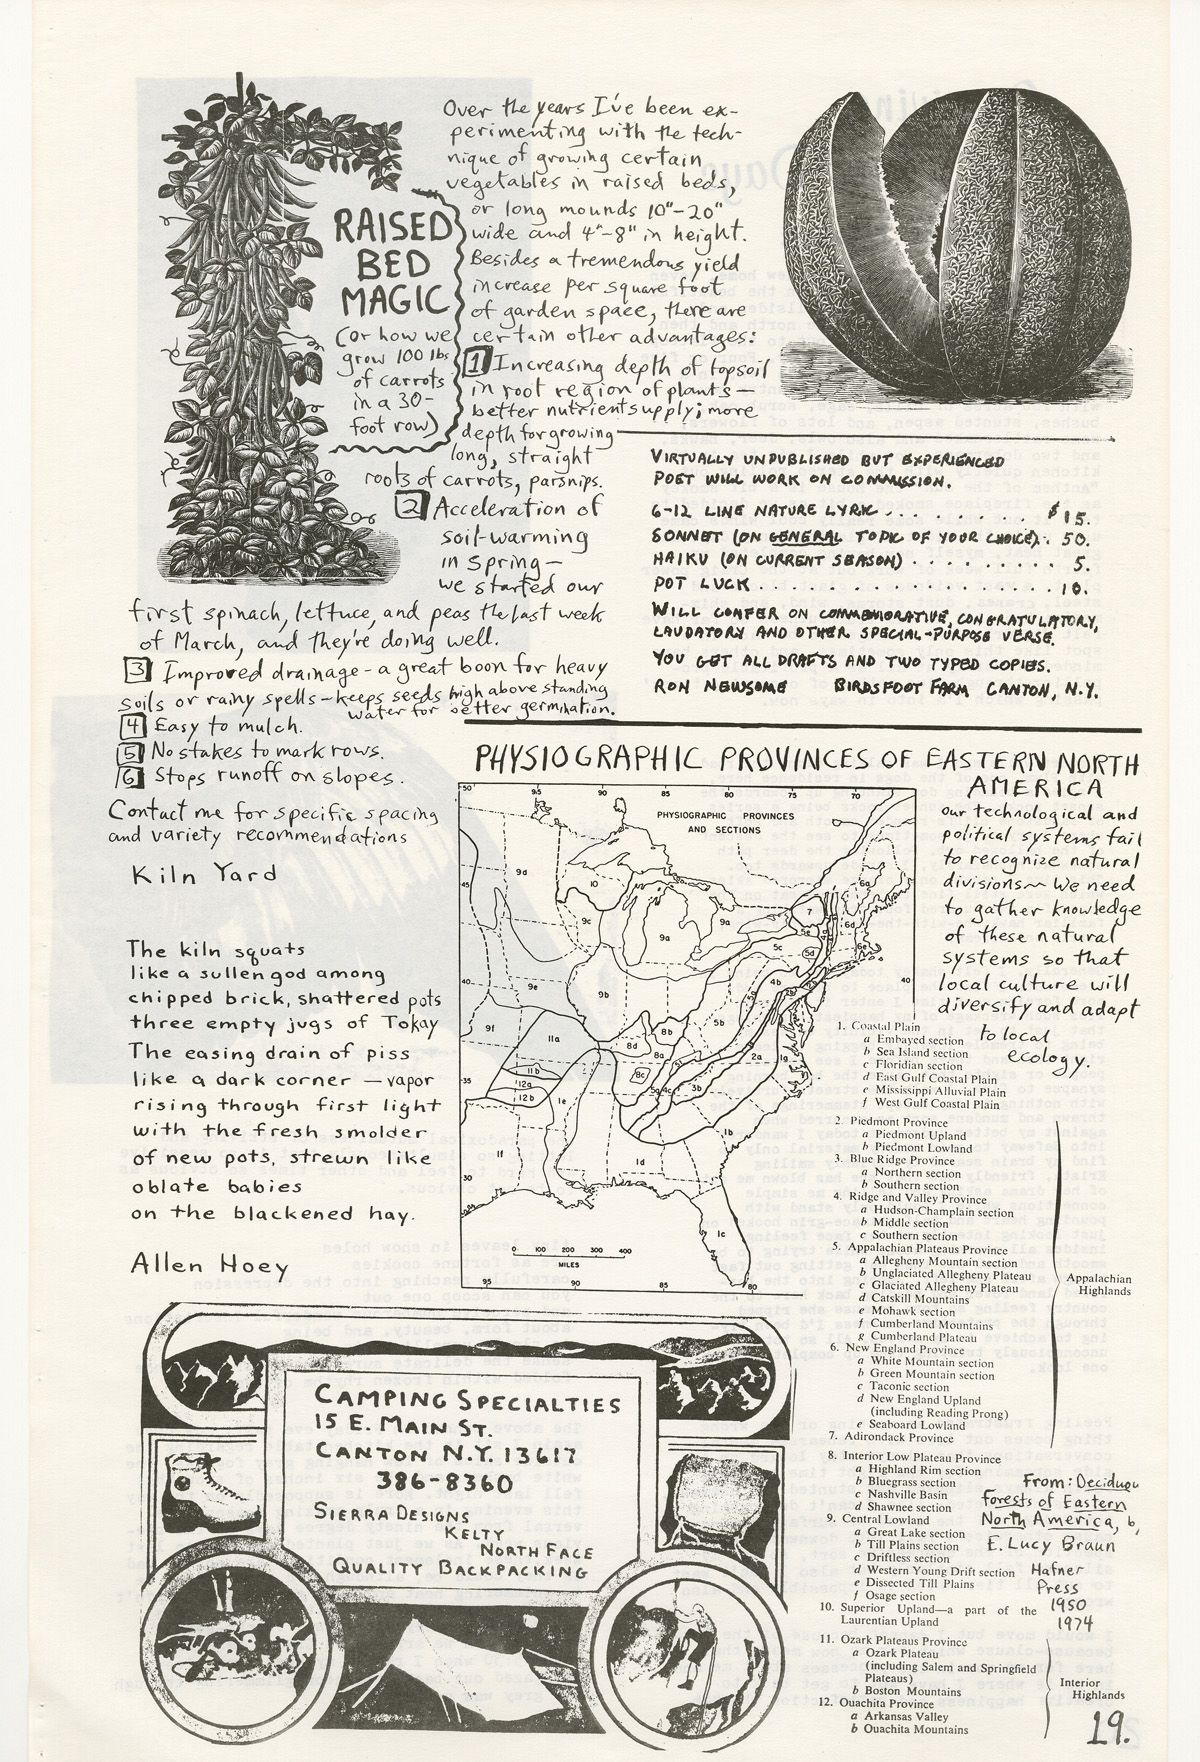 Over the years I've been ex-
perimenting with the tech-
nique of growing certain
vegetables in raised beds,
or long mounds 10"-20"
wide and 4"-8" in height.
Besides a tremendous yield
increase per square foot
of garden space, there are
certain other advantages:
1 Increasing depth of topsoil
in root region of plants—
better nutrient supply; more
depth for growing
long, straight
roots of carrots, parsnips.
2 Acceleration of
soil-warming
in spring—
we started our
first spinach, lettuce, and peas the last week
of March, and they're doing well.
3 Improved drainage - a great boon for heavy
soils or rainy spells—keeps seeds high above standing
water for better germination.
4 Easy to mulch.
5 No stakes to mark rows.
6 Stops runoff on slopes.
Contact me for specific spacing
and variety recommendations
RAISED
BED
MAGIC
(or how we
grow 100 lbs
of carrots
in a 30-
foot row)
VIRTUALLY UNPUBLISHED BUT EXPERIENCED
POET WILL WORK ON COMMISSION.
6-12 LINE NATURE LYRIC . . . . . . . . $15.
SONNET (ON GENERAL TOPIC OF YOUR CHOICE). . 50.
HAIKU (ON CURRENT SEASON) . . . . . . . . . 5.
POT LUCK . . . . . . . . . . . . . . . . . . 10.
WILL CONFER ON COMMEMORATIVE, CONGRATULATORY,
LAUDATORY AND OTHER SPECIAL-PURPOSE VERSE.
YOU GET ALL DRAFTS AND TWO TYPED COPIES.
RON NEWSOME BIRDSFOOT FARM CANTON, N.Y.
Kiln Yard
The kiln squats
like a sullen god among
chipped brick, shattered pots
three empty jugs of Tokay
The easing drain of piss
like a dark corner — vapor
rising through first light
with the fresh smolder
of new pots, strewn like
oblate babies
on the blackened hay.
Allen Hoey
PHYSIOGRAPHIC PROVINCES OF EASTERN NORTH
AMERICA
our technological and
political systems fail
to recognize natural
divisions~ We need
to gather knowledge
of these natural
systems so that
local culture will
diversify and adapt
to local
ecology.
95 90 85 80 75 70
PHYSIOGRAPHIC PROVINCES
AND SECTIONS
45
40
35
30
40
9d
10
9c
9a
9a
7
6a
6d
6e
5e
5c
5d
9e
9b
9f
11a
11b
12a
12b
8b
8d
8a
8c
5b
4b
2a
1g
3b
1e
1f
1d
1b
1c
0 100 200 300 400
MILES
95 90 85 80
1. Coastal Plain
a Embayed section
b Sea Island section
c Floridian section
d East Gulf Coastal Plain
e Mississippi Alluvial Plain
f West Gulf Coastal Plain
2. Piedmont Province
a Piedmont Upland
b Piedmont Lowland
3. Blue Ridge Province
a Northern section
b Southern section
4. Ridge and Valley Province
a Hudson-Champlain section
b Middle section
c Southern section
5. Appalachian Plateaus Province
a Allegheny Mountain section
b Unglaciated Allegheny Plateau
c Glaciated Allegheny Plateau
d Catskill Mountains
e Mohawk section
f Cumberland Mountains
g Cumberland Plateau
6. New England Province
a White Mountain section
b Green Mountain section
c Taconic section
d New England Upland
(including Reading Prong)
e Seaboard Lowland
7. Adirondack Province
Appalachian
Highlands
8. Interior Low Plateau Province
a Highland Rim section
b Bluegrass section
c Nashville Basin
d Shawnee section
9. Central Lowland
a Great Lake section
b Till Plains section
c Driftless section
d Western Young Drift section
e Dissected Till Plains
f Osage section
10. Superior Upland—a part of the
Laurentian Upland
11. Ozark Plateaus Province
a Ozark Plateau
(including Salem and Springfield
Plateaus)
b Boston Mountains
12. Ouachita Province
a Arkansas Valley
b Ouachita Mountains
Interior
Highlands
From: Deciduou
Forests of Eastern
North America, b,
E. Lucy Braun
Hafner
Press
1950
1974
CAMPING SPECIALTIES
15 E. MAIN ST.
CANTON N.Y. 13617
386-8360
SIERRA DESIGNS
KELTY
NORTH FACE
QUALITY BACKPACKING
19.